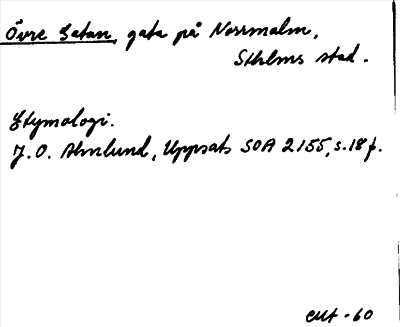 Övre Gatan, gata på Norrmalm,
Sthlms stad.
Etymologi.
J. O. Almlund, Uppsats SOA 2155, s. 18 f.
-60